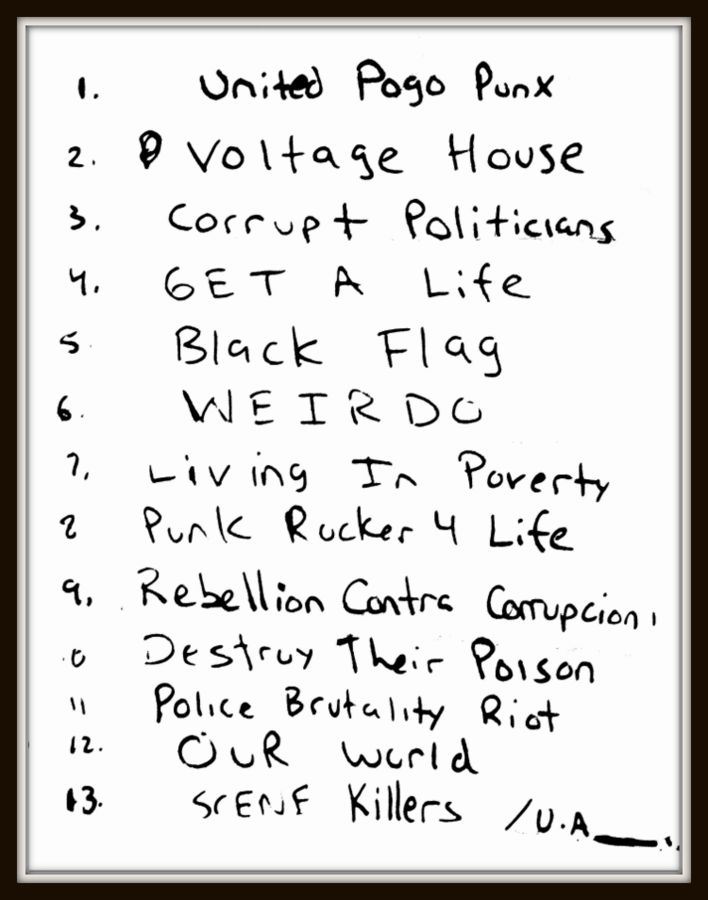 1. United Pogo Punx
2. Voltage House
3. Corrupt Politicians
4. GET A Life
5. Black Flag
6. WEIRDO
7. Living In Poverty
8 Punk Rocker 4 Life
9. Rebellion Contra Corrupcion
10 Destroy Their Poison
11 Police Brutality Riot
12. OUR World
13. SCENE Killers /U.A